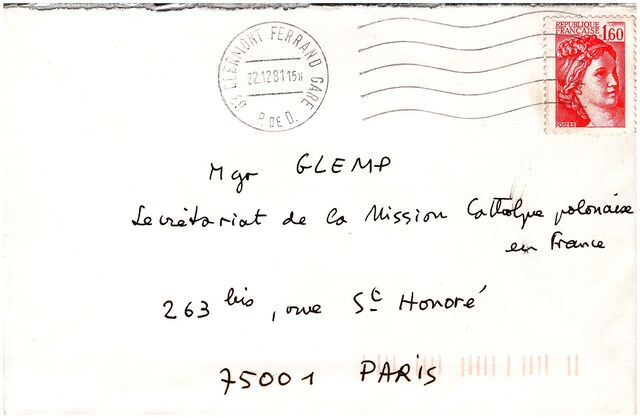 63 CLERMONT FERRAND GARE
22.12.81 15H
P. DE D.
REPUBLIQUE
FRANÇAISE
1,60
POSTES
Mgr GLEMP
Secrétariat de la Mission Cattolque polonaise
en France
263 bis, rue St Honoré
75001 PARIS